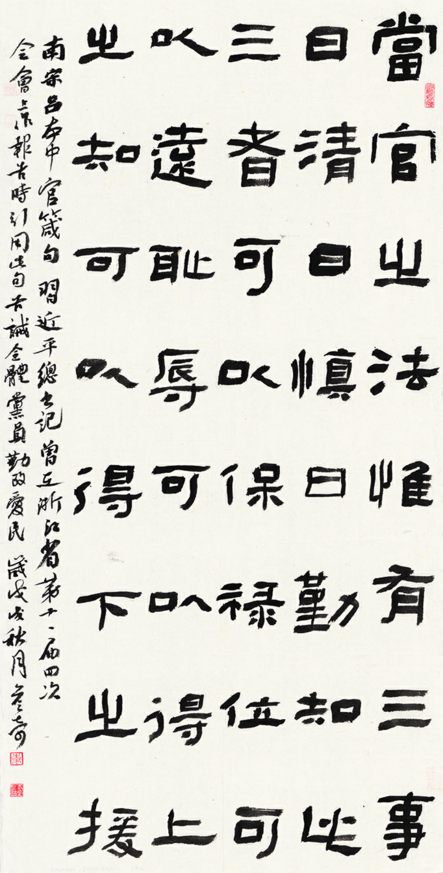 當官之法惟有三事
曰清曰慎曰勤知此
三者可以保禄位可
以遠恥辱可以得上
之知可以得下之援
南宋吕本中官箴句 習近平總书記曾在浙江省第十一届四次
全會上作報告時引用此句告誡全體黨員勤政愛民 歲戊戌秋月